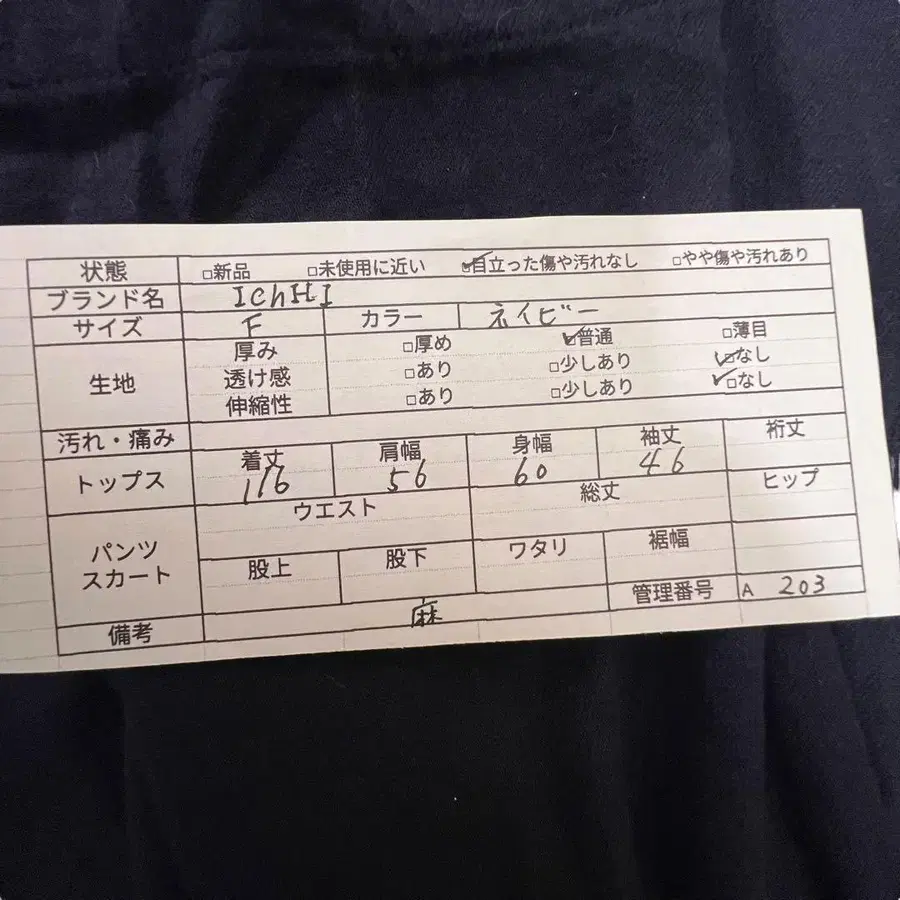 状態 □新品 □未使用に近い ☑目立った傷や汚れなし □やや傷や汚れあり
ブランド名 IchHI
サイズ F カラー ネイビー
生地 厚み □厚め ☑普通 □薄目
透け感 □あり □少しあり ☑なし
伸縮性 □あり □少しあり ☑なし
汚れ・痛み
トップス 着丈 肩幅 身幅 袖丈 裄丈
116 56 60 46
パンツ スカート ウエスト 総丈 ヒップ
股上 股下 ワタリ 裾幅
管理番号 A 203
備考 麻